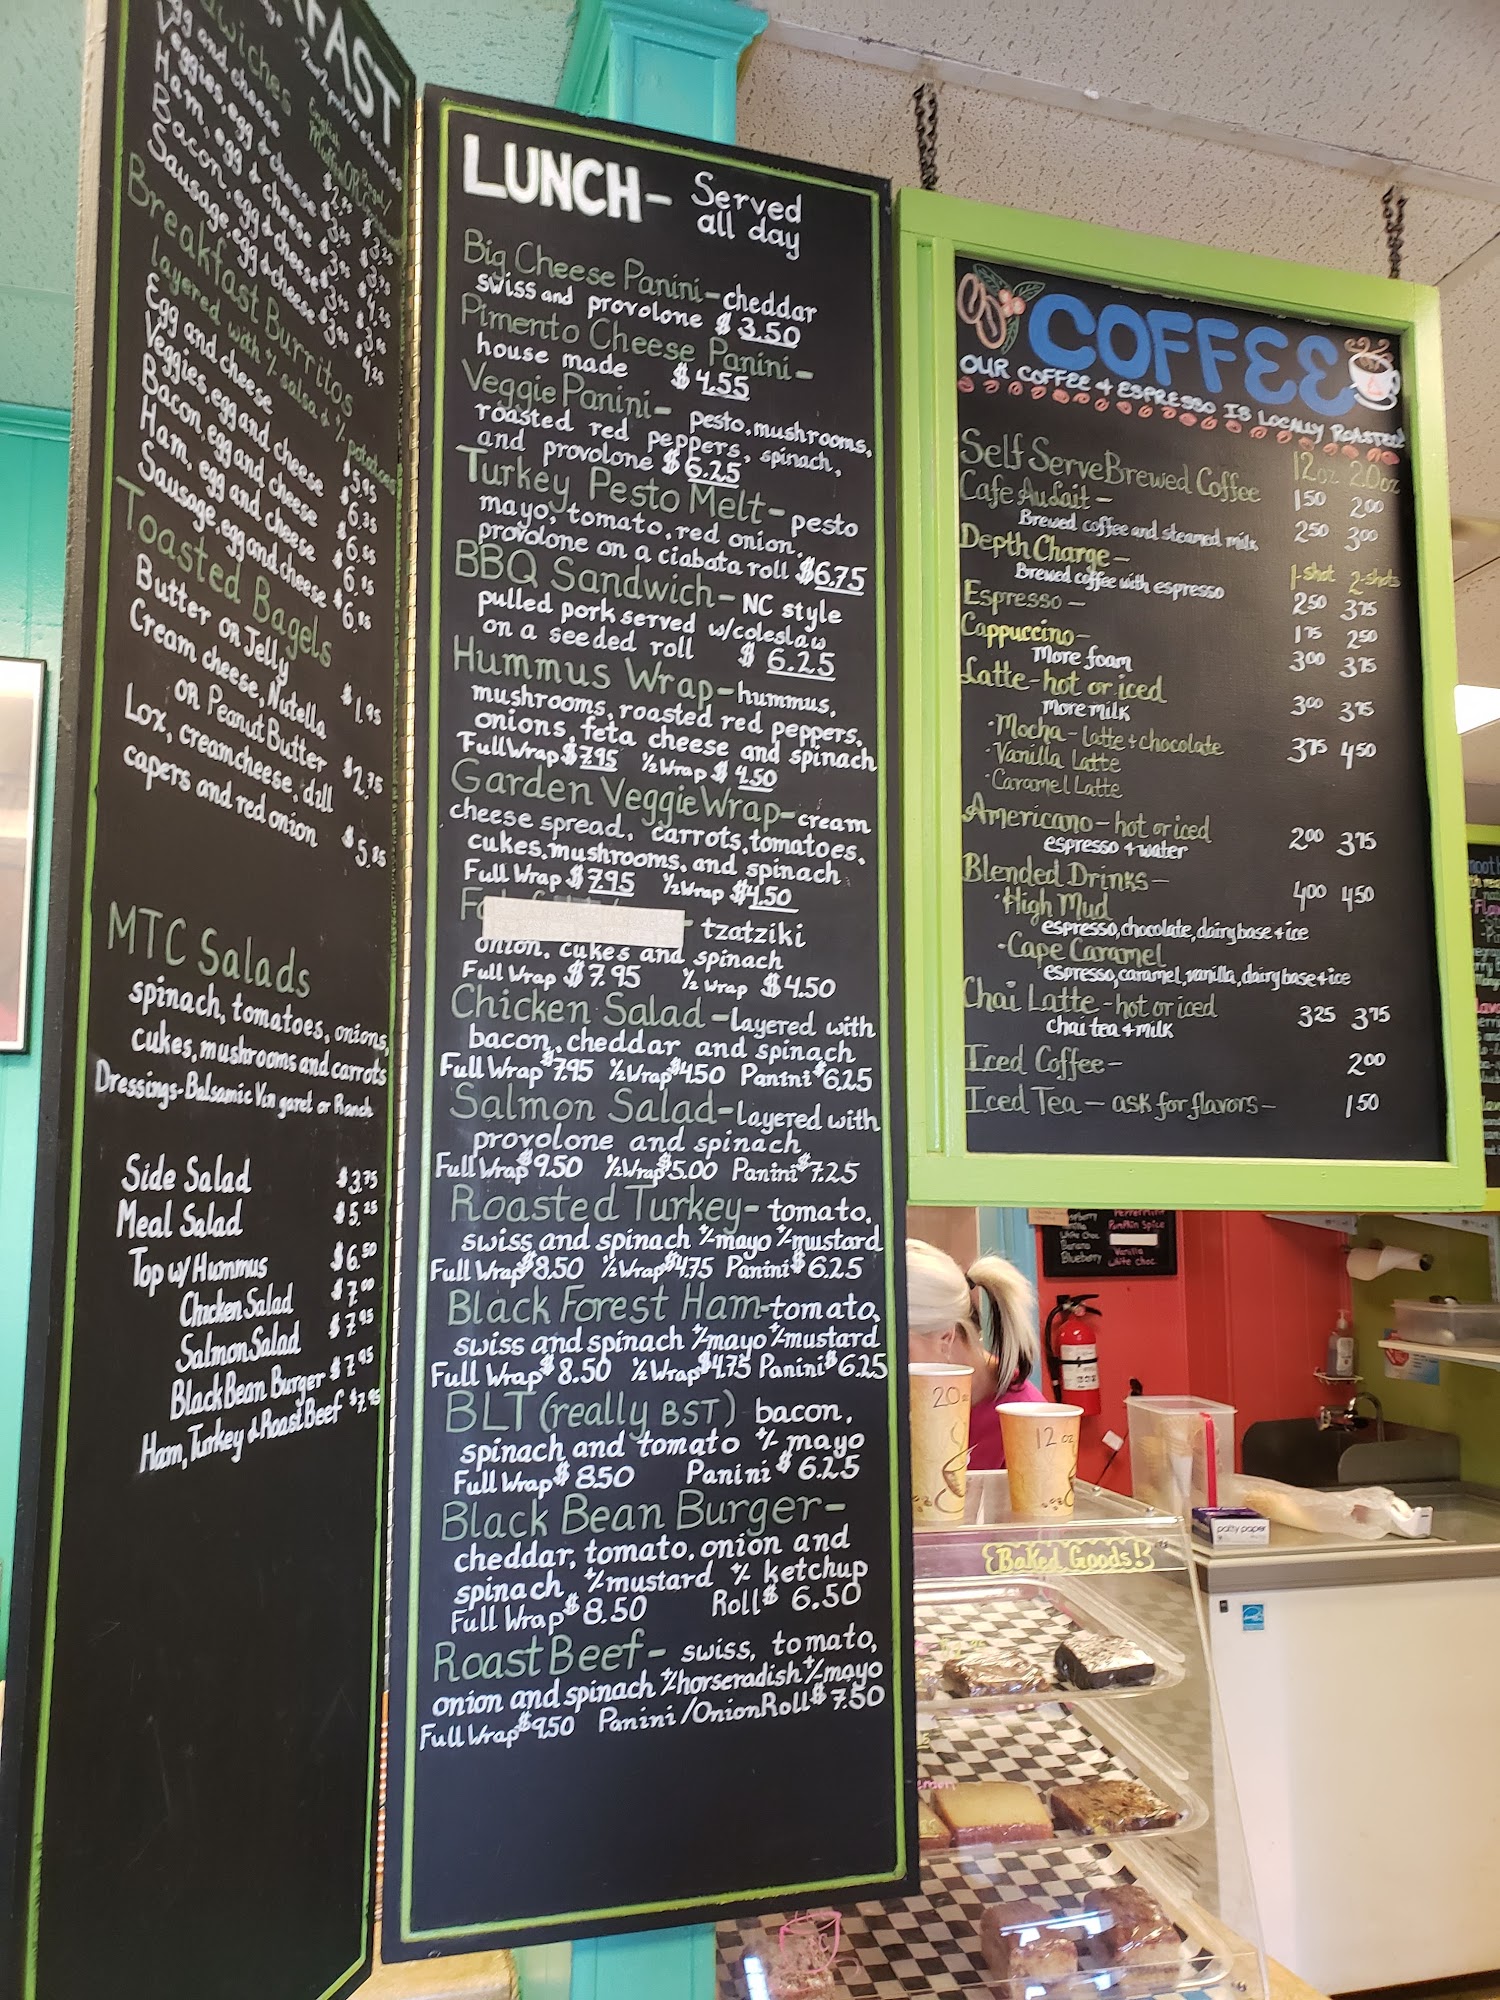 FAST
English Muffin OR
Egg and cheese
Veggies, egg & cheese
Ham, egg & cheese
Bacon, egg & cheese
Sausage, egg & cheese
Breakfast Burritos
layered with +/- salsa & +/- potatoes
Egg and cheese $5.95
Veggies, egg and cheese
Bacon, egg and cheese
Ham, egg and cheese
Sausage, egg and cheese
Toasted Bagels
Butter OR Jelly $1.95
Cream cheese, Nutella
OR Peanut Butter $2.75
Lox, creamcheese, dill
capers and red onion
MTC Salads
spinach, tomatoes, onions,
cukes, mushrooms and carrots
Dressings - Balsamic Vin garet or Ranch
Side Salad $3.75
Meal Salad $5.25
Top w/ Hummus $6.50
Chicken Salad $7.00
Salmon Salad $7.95
Black Bean Burger $7.95
Ham, Turkey & Roast Beef $7.95
LUNCH - Served
all day
Big Cheese Panini - cheddar
swiss and provolone $3.50
Pimento Cheese Panini -
house made $4.55
Veggie Panini - pesto, mushrooms,
roasted red peppers, spinach,
and provolone $6.25
Turkey Pesto Melt - pesto
mayo, tomato, red onion,
provolone on a ciabata roll $6.75
BBQ Sandwich - NC style
pulled pork served w/coleslaw
on a seeded roll $6.25
Hummus Wrap - hummus,
mushrooms, roasted red peppers,
onions, feta cheese and spinach
Full Wrap $7.95 1/2 Wrap $4.50
Garden Veggie Wrap - cream
cheese spread, carrots, tomatoes,
cukes, mushrooms, and spinach
Full Wrap $7.95 1/2 Wrap $4.50
- tzatziki
onion, cukes and spinach
Full Wrap $7.95 1/2 Wrap $4.50
Chicken Salad - layered with
bacon, cheddar and spinach
Full Wrap $7.95 1/2 Wrap $4.50 Panini $6.25
Salmon Salad - layered with
provolone and spinach
Full Wrap $9.50 1/2 Wrap $5.00 Panini $7.25
Roasted Turkey - tomato,
swiss and spinach +/- mayo +/- mustard
Full Wrap $8.50 1/2 Wrap $4.75 Panini $6.25
Black Forest Ham - tomato,
swiss and spinach +/- mayo +/- mustard
Full Wrap $8.50 1/2 Wrap $4.75 Panini $6.25
BLT (really BST) bacon,
spinach and tomato +/- mayo
Full Wrap $8.50 Panini $6.25
Black Bean Burger -
cheddar, tomato, onion and
spinach +/- mustard +/- ketchup
Full Wrap $8.50 Roll $6.50
Roast Beef - swiss, tomato,
onion and spinach +/- horseradish +/- mayo
Full Wrap $9.50 Panini/Onion Roll $7.50
COFFEE
OUR COFFEE & ESPRESSO IS LOCALLY ROASTED!
12oz 20oz
Self Serve Brewed Coffee 1.50 2.00
Cafe Au Lait - 2.50 3.00
Brewed coffee and steamed milk
1-shot 2-shots
Depth Charge - 2.50 3.75
Brewed coffee with espresso
Espresso - 1.75 2.50
Cappuccino - 3.00 3.75
More foam
Latte - hot or iced 3.00 3.75
More milk
· Mocha - latte + chocolate 3.75 4.50
· Vanilla Latte
· Caramel Latte
Americano - hot or iced 2.00 3.75
espresso + water
Blended Drinks - 4.00 4.50
· High Mud
espresso, chocolate, dairy base + ice
· Cape Caramel
espresso, caramel, vanilla, dairy base + ice
Chai Latte - hot or iced 3.25 3.75
chai tea + milk
Iced Coffee - 2.00
Iced Tea - ask for flavors - 1.50
Vanilla
White Choc
Banana
Blueberry
Peppermint
Pumpkin Spice
Vanilla
White Choc
20oz
12 oz
patty paper
Baked Goods!